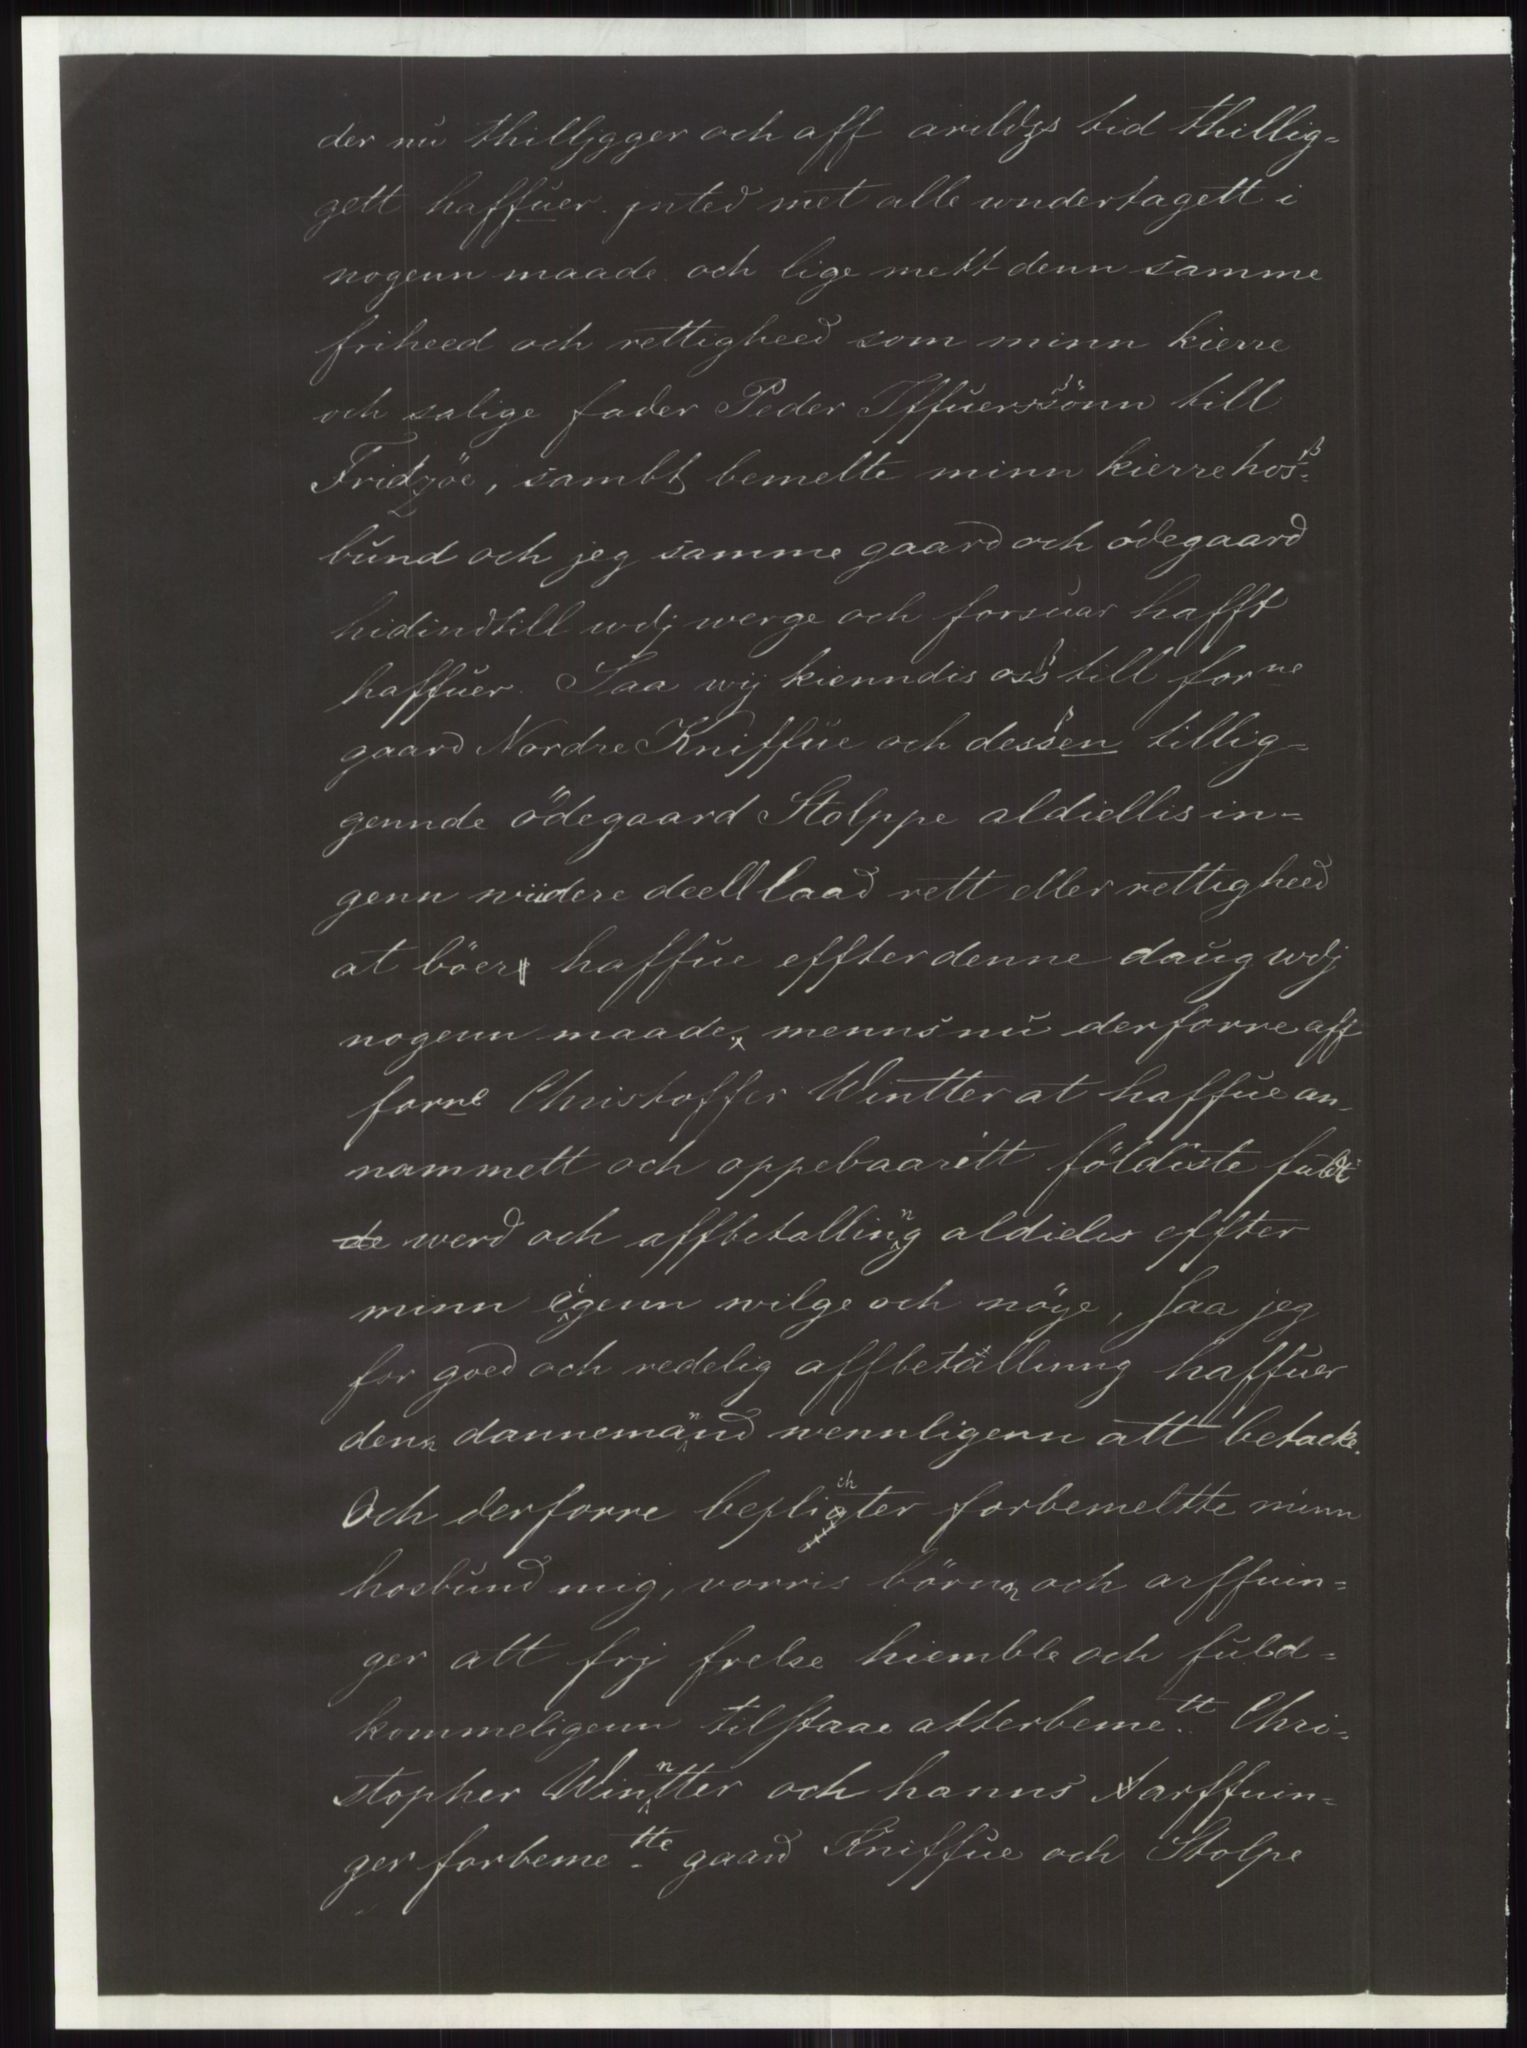 der nu thilljgger och aff arildzs tid thillig=
gett haffuer. jnted met alle wndertagett i
nogenn maade och lige mett denn samme
friheed och rettigheed som minn kierre
och salige fader Peder Iffuerssönn till
Fridzöe, sambt bemelte minn kierre hos=
bund och jeg samme gaard och ödegaard
hidindtill wdj werge och forsuar hafft
haffuer. Saa wij kienndis oss till forne
gaard Nordre Kniffue och dessen tillig=
gennde ödegaard Stolppe aldiellis in=
genn widere deell laad rett eller rettigheed
at böer haffue effter denne daug wdj
nogenn maade, menns nu derforre aff
forne Christoffer Wintter at haffue an=
nammett och oppebaaritt földiste fuldt
werd och affbetallinng aldieles effter
minn eigenn wilge och nöye, Saa jeg
for goed och redelig affbetallinng haffuer
denn dannemannd wennligenn att betacke.
Och derforre beplichter forbemeltte minn
hosbund mig, vorris börnn och arffuin=
ger att frj frelse hiemble och fuld=
kommeligenn tilstaae atterbeme tt Chri=
stopher Winntter och hanns arffuin=
ger forbeme tte gaard Kniffue och Stolpe